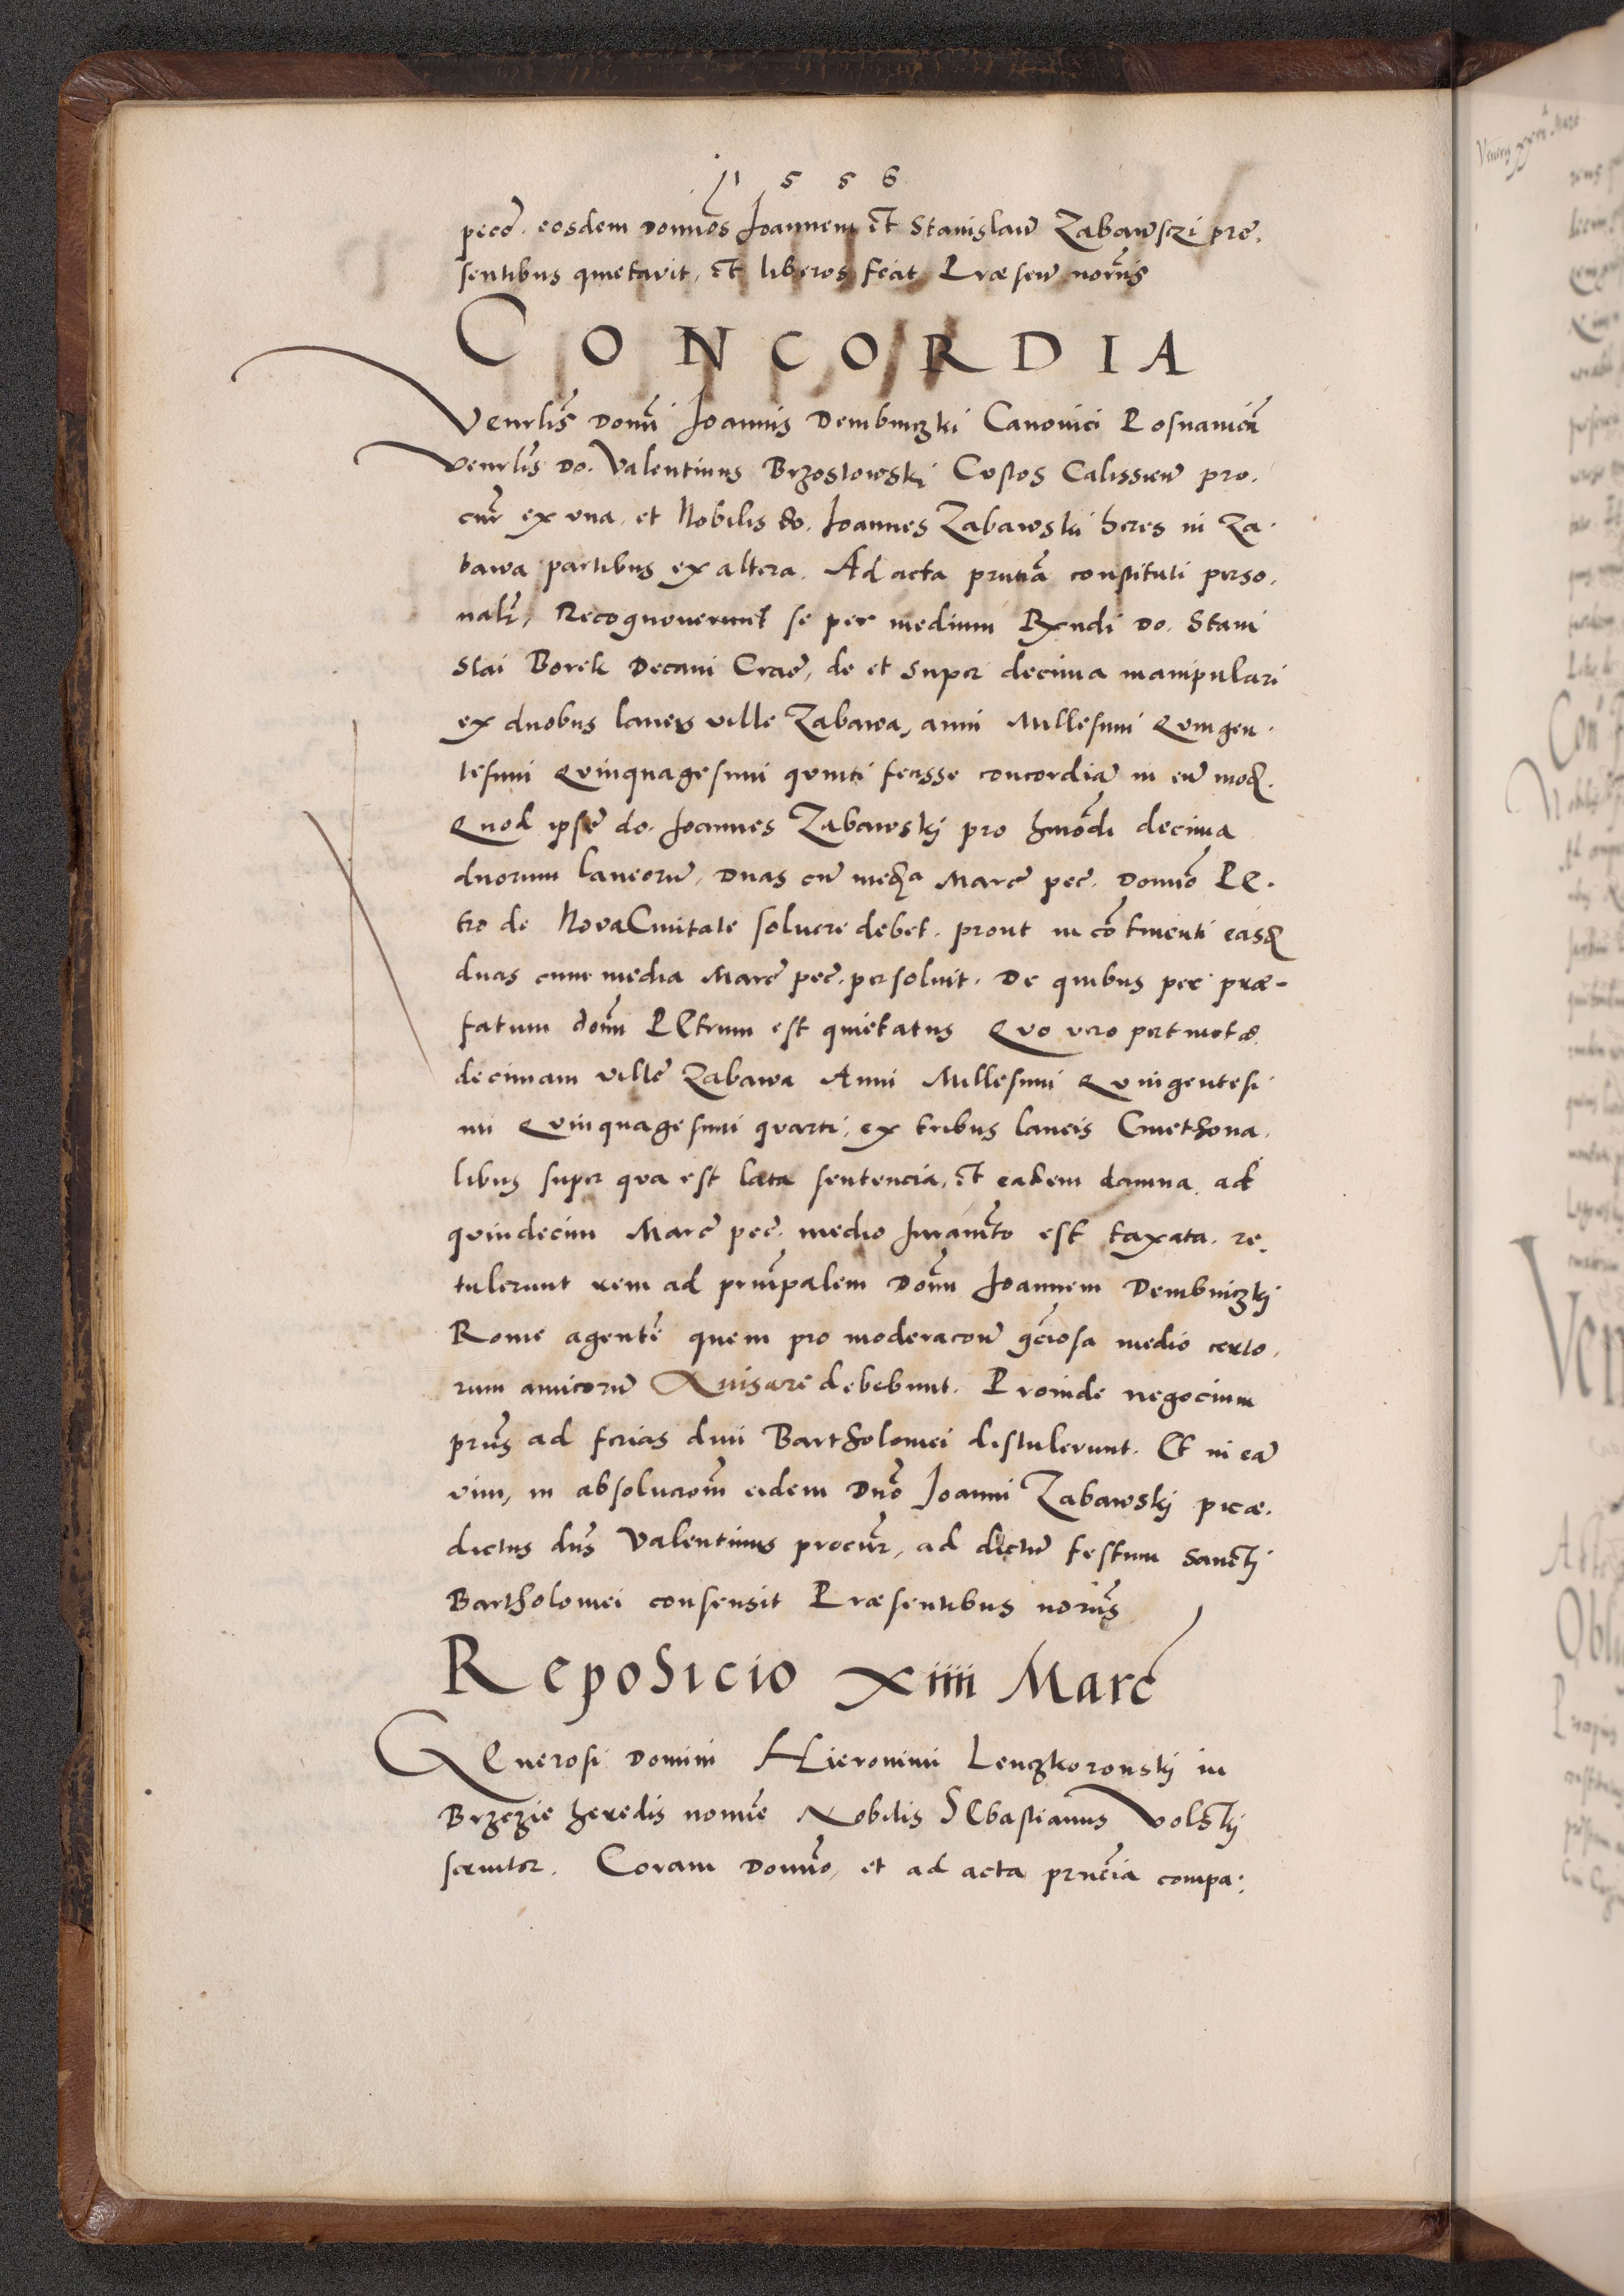 1556
pecē. eosdem Domīos Joannem et Stanislaū Zabawsczi pre,
sentibus quietavit, et liberos fecit Præsen notariis
CONCORDIA
Venrlis Domī Joannis Dembinczki Canonici Posnanien
Venrlis Do. Valentinus Brzostowski Custos Calissien pro.
cur ex vna, et Nobilis do. Joannes Zabawski heres in Za.
bawa partibus ex altera. Ad acta prntia constituti perso.
nalr, Recognoverunt se per medium Rxndi Do. Stani
Slai Borek Decani Crac, de et super decima manipulari
ex duobus laneis ville Zabawa, anni Millesimi Quingen.
tesimi Quinquagesimi quinti fecisse concordiā in eū modū.
Quod ipse do. Joannes Zabawskj pro hmōdi decima
duorum laneorū, Duas cū media Marc pec. Domino Pe.
tro de Nova Civitate soluere debet. prout in cōtinenti easdē
duas cum media Marc pec. persoluit. De quibus per præ-
fatum dom̄ Petrum est quietatus Quo vero pertinet ad
decimam ville Zabawa Anni Millesimi Quingentesi
mi Quinquagesimi quarti, ex tribus laneis Cmethona.
libus super qua est lata sentencia, et eadem damna ad
quindecim Marc pec. medio Juramto est taxata. re.
tulerunt rem ad prncipalem Dom̄ Joannem Dembniczkj
Rome agentē quem pro moderacōne gciosa medio certo,
rum amicorū Auisare debebunt. Proinde negocium
prns ad ferias divi Bartholomei distulerunt. Et in eā
vim, in absolucionem eidem Dno Joanni Zabawskj præ.
dictus dns Valentinus procur, ad dictū festum Sancti
Bartholomei consensit Præsentibus notariis
Reposicio xiiii Marc
Generosi Domini Hieronimi Lenczkoronskj in
Brzezie heredis nomīe Nobilis Sebastianus Volskj
seruitor. Coram Domino, et ad acta prncia compa.